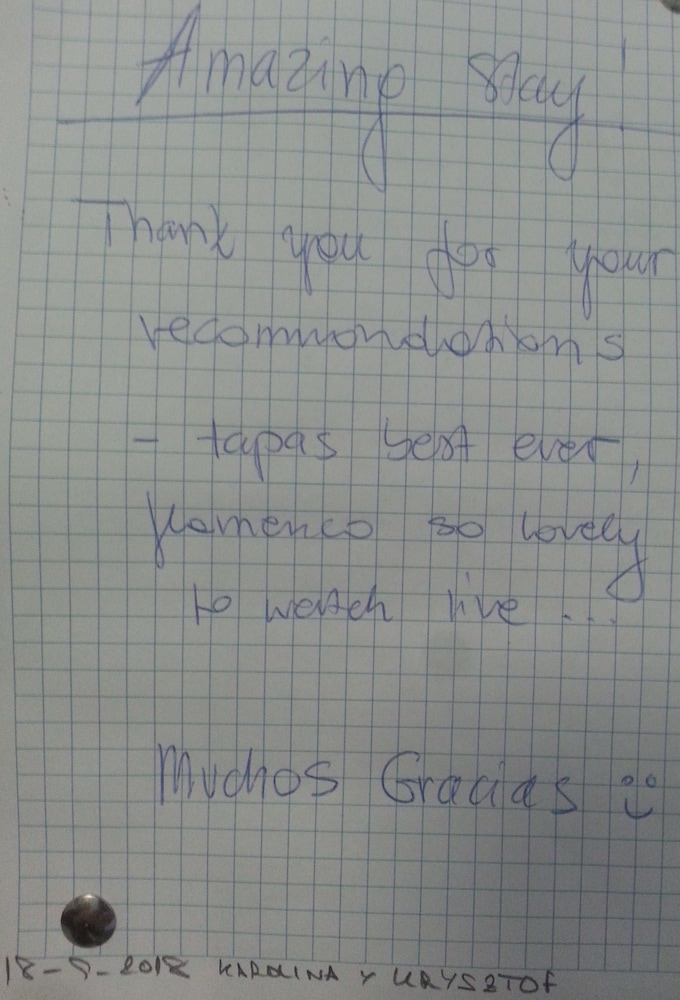 Amazing stay!
Thank you for your
recommondations
- tapas best ever,
flamenco so lovely
to watch live ...
Muchos Gracias
2018 KAROLINA Y KRYSZTOF